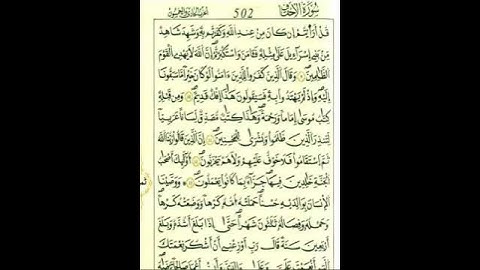 سُورَةُ الْأَحْقَافِ 502 الجزء السادس والعشرون
قُلْ أَرَأَيْتُمْ إِن كَانَ مِنْ عِندِ اللَّهِ وَكَفَرْتُم بِهِ وَشَهِدَ شَاهِدٌ
مِّن بَنِي إِسْرَائِيلَ عَلَىٰ مِثْلِهِ فَآمَنَ وَاسْتَكْبَرْتُمْ إِنَّ اللَّهَ لَا يَهْدِي الْقَوْمَ
الظَّالِمِينَ وَقَالَ الَّذِينَ كَفَرُوا لِلَّذِينَ آمَنُوا لَوْ كَانَ خَيْرًا مَّا سَبَقُونَا
إِلَيْهِ وَإِذْ لَمْ يَهْتَدُوا بِهِ فَسَيَقُولُونَ هَٰذَا إِفْكٌ قَدِيمٌ وَمِن قَبْلِهِ
كِتَابُ مُوسَىٰ إِمَامًا وَرَحْمَةً وَهَٰذَا كِتَابٌ مُّصَدِّقٌ لِّسَانًا عَرَبِيًّا
لِّتُنذِرَ الَّذِينَ ظَلَمُوا وَبُشْرَىٰ لِلْمُحْسِنِينَ إِنَّ الَّذِينَ قَالُوا رَبُّنَا اللَّهُ
ثُمَّ اسْتَقَامُوا فَلَا خَوْفٌ عَلَيْهِمْ وَلَا هُمْ يَحْزَنُونَ أُولَٰئِكَ أَصْحَابُ
الْجَنَّةِ خَالِدِينَ فِيهَا جَزَاءً بِمَا كَانُوا يَعْمَلُونَ وَوَصَّيْنَا
الْإِنسَانَ بِوَالِدَيْهِ حُسْنًا حَمَلَتْهُ أُمُّهُ كَرْهًا وَوَضَعَتْهُ كَرْهًا
وَحَمْلُهُ وَفِصَالُهُ ثَلَاثُونَ شَهْرًا حَتَّىٰ إِذَا بَلَغَ أَشُدَّهُ وَبَلَغَ
أَرْبَعِينَ سَنَةً قَالَ رَبِّ أَوْزِعْنِي أَنْ أَشْكُرَ نِعْمَتَكَ